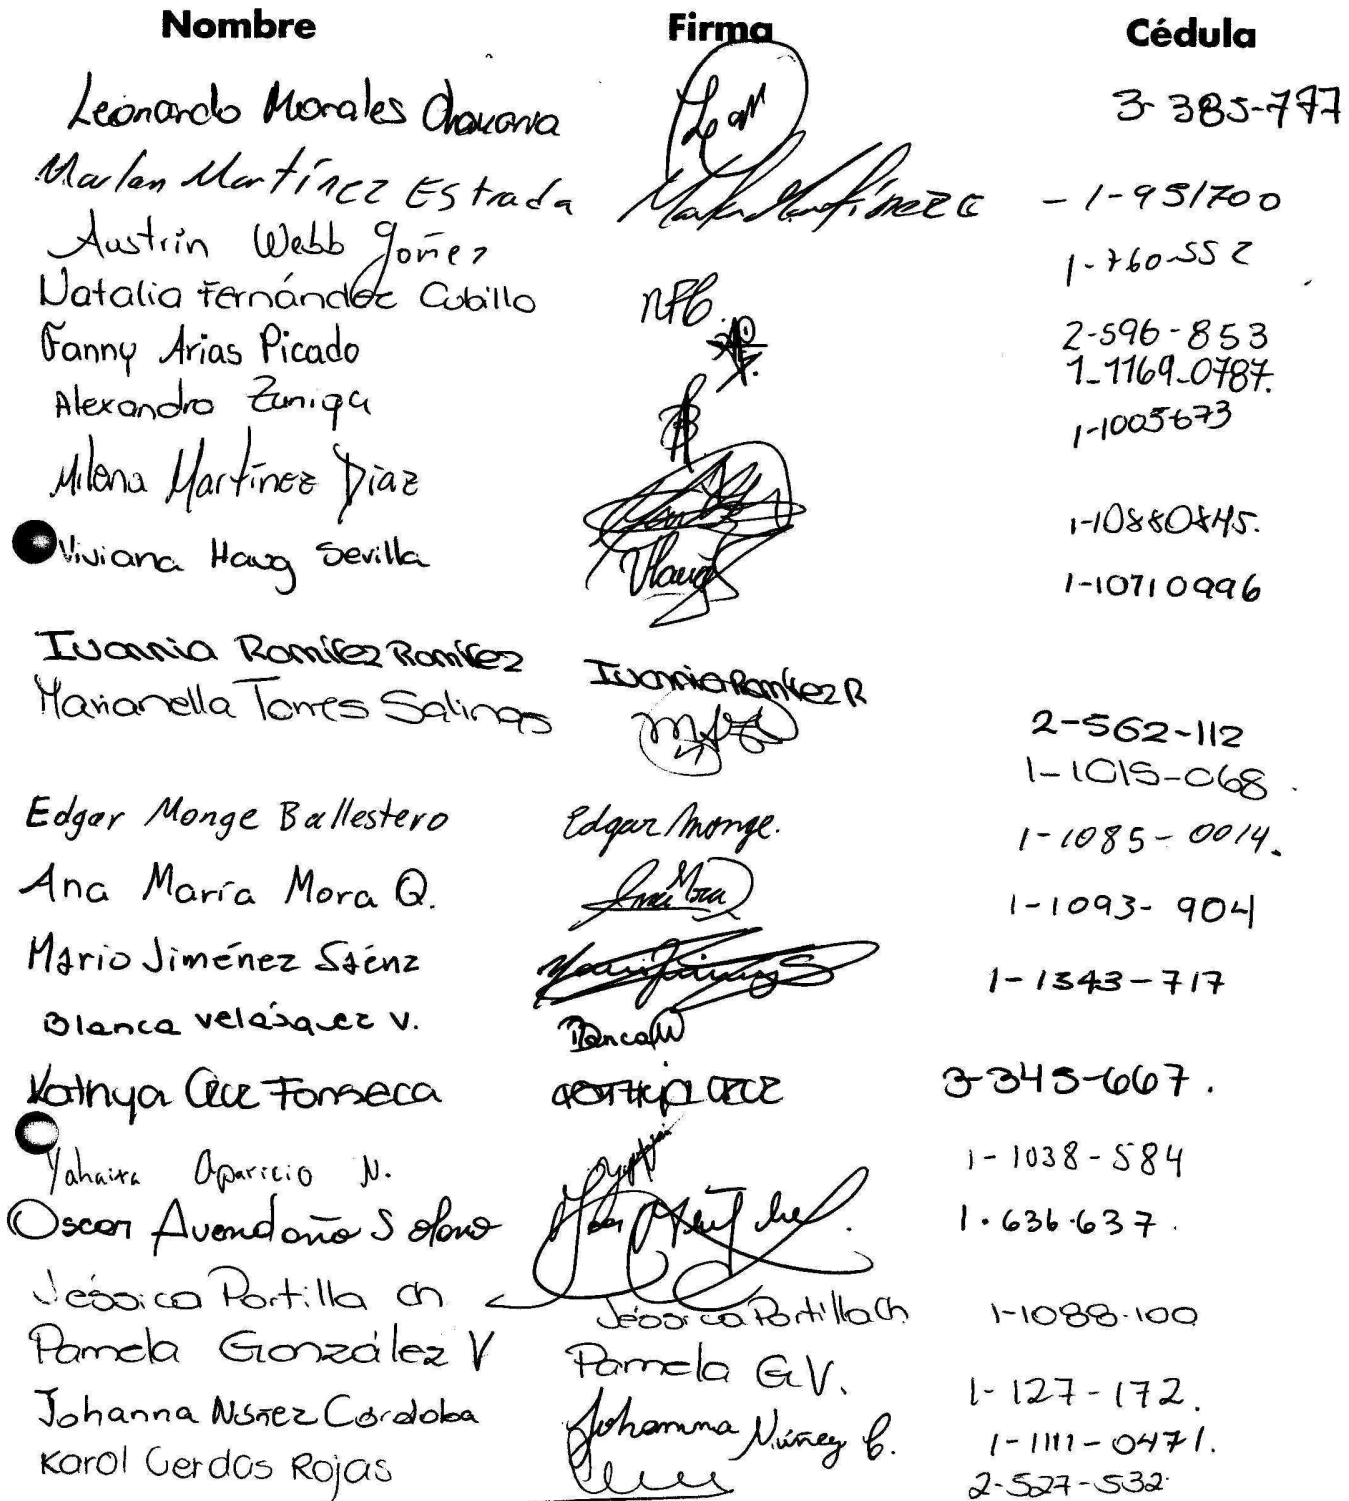 Nombre Firma Cédula
Leonardo Morales Chavarria 3-385-777
Marlen Martínez Estrada - 1-951700
Austrin Webb Gómez 1-760-552
Natalia Fernández Cubillo NFC. 2-596-853
Fanny Arias Picado 1-1169-0787.
Alexandra Zuniga 1-1005673
Milena Martínez Díaz 1-10880845.
Viviana Haug Sevilla VHaug 1-10710996
Ivannia Ramírez Ramírez Ivannia Ramírez R 2-562-112
Marianella Torres Salinas 1-1015-068.
Edgar Monge Ballestero Edgar Monge. 1-1085-0014.
Ana María Mora Q. Ana Mora 1-1093-904
Mario Jiménez Sáenz 1-1343-717
Blanca Velásquez V. Blanca V
Kathya Cruz Fonseca Kathya Cruz 3-345-667.
Yahaira Aparicio N. 1-1038-584
Oscar Avendaño Solano 1.636.637.
Jéssica Portilla Ch Jéssica Portilla Ch 1-1088-100
Pamela González V Pamela G.V. 1-127-172.
Johanna Núñez Córdoba Johanna Núñez C. 1-1111-0471.
Karol Cerdas Rojas 2-527-532